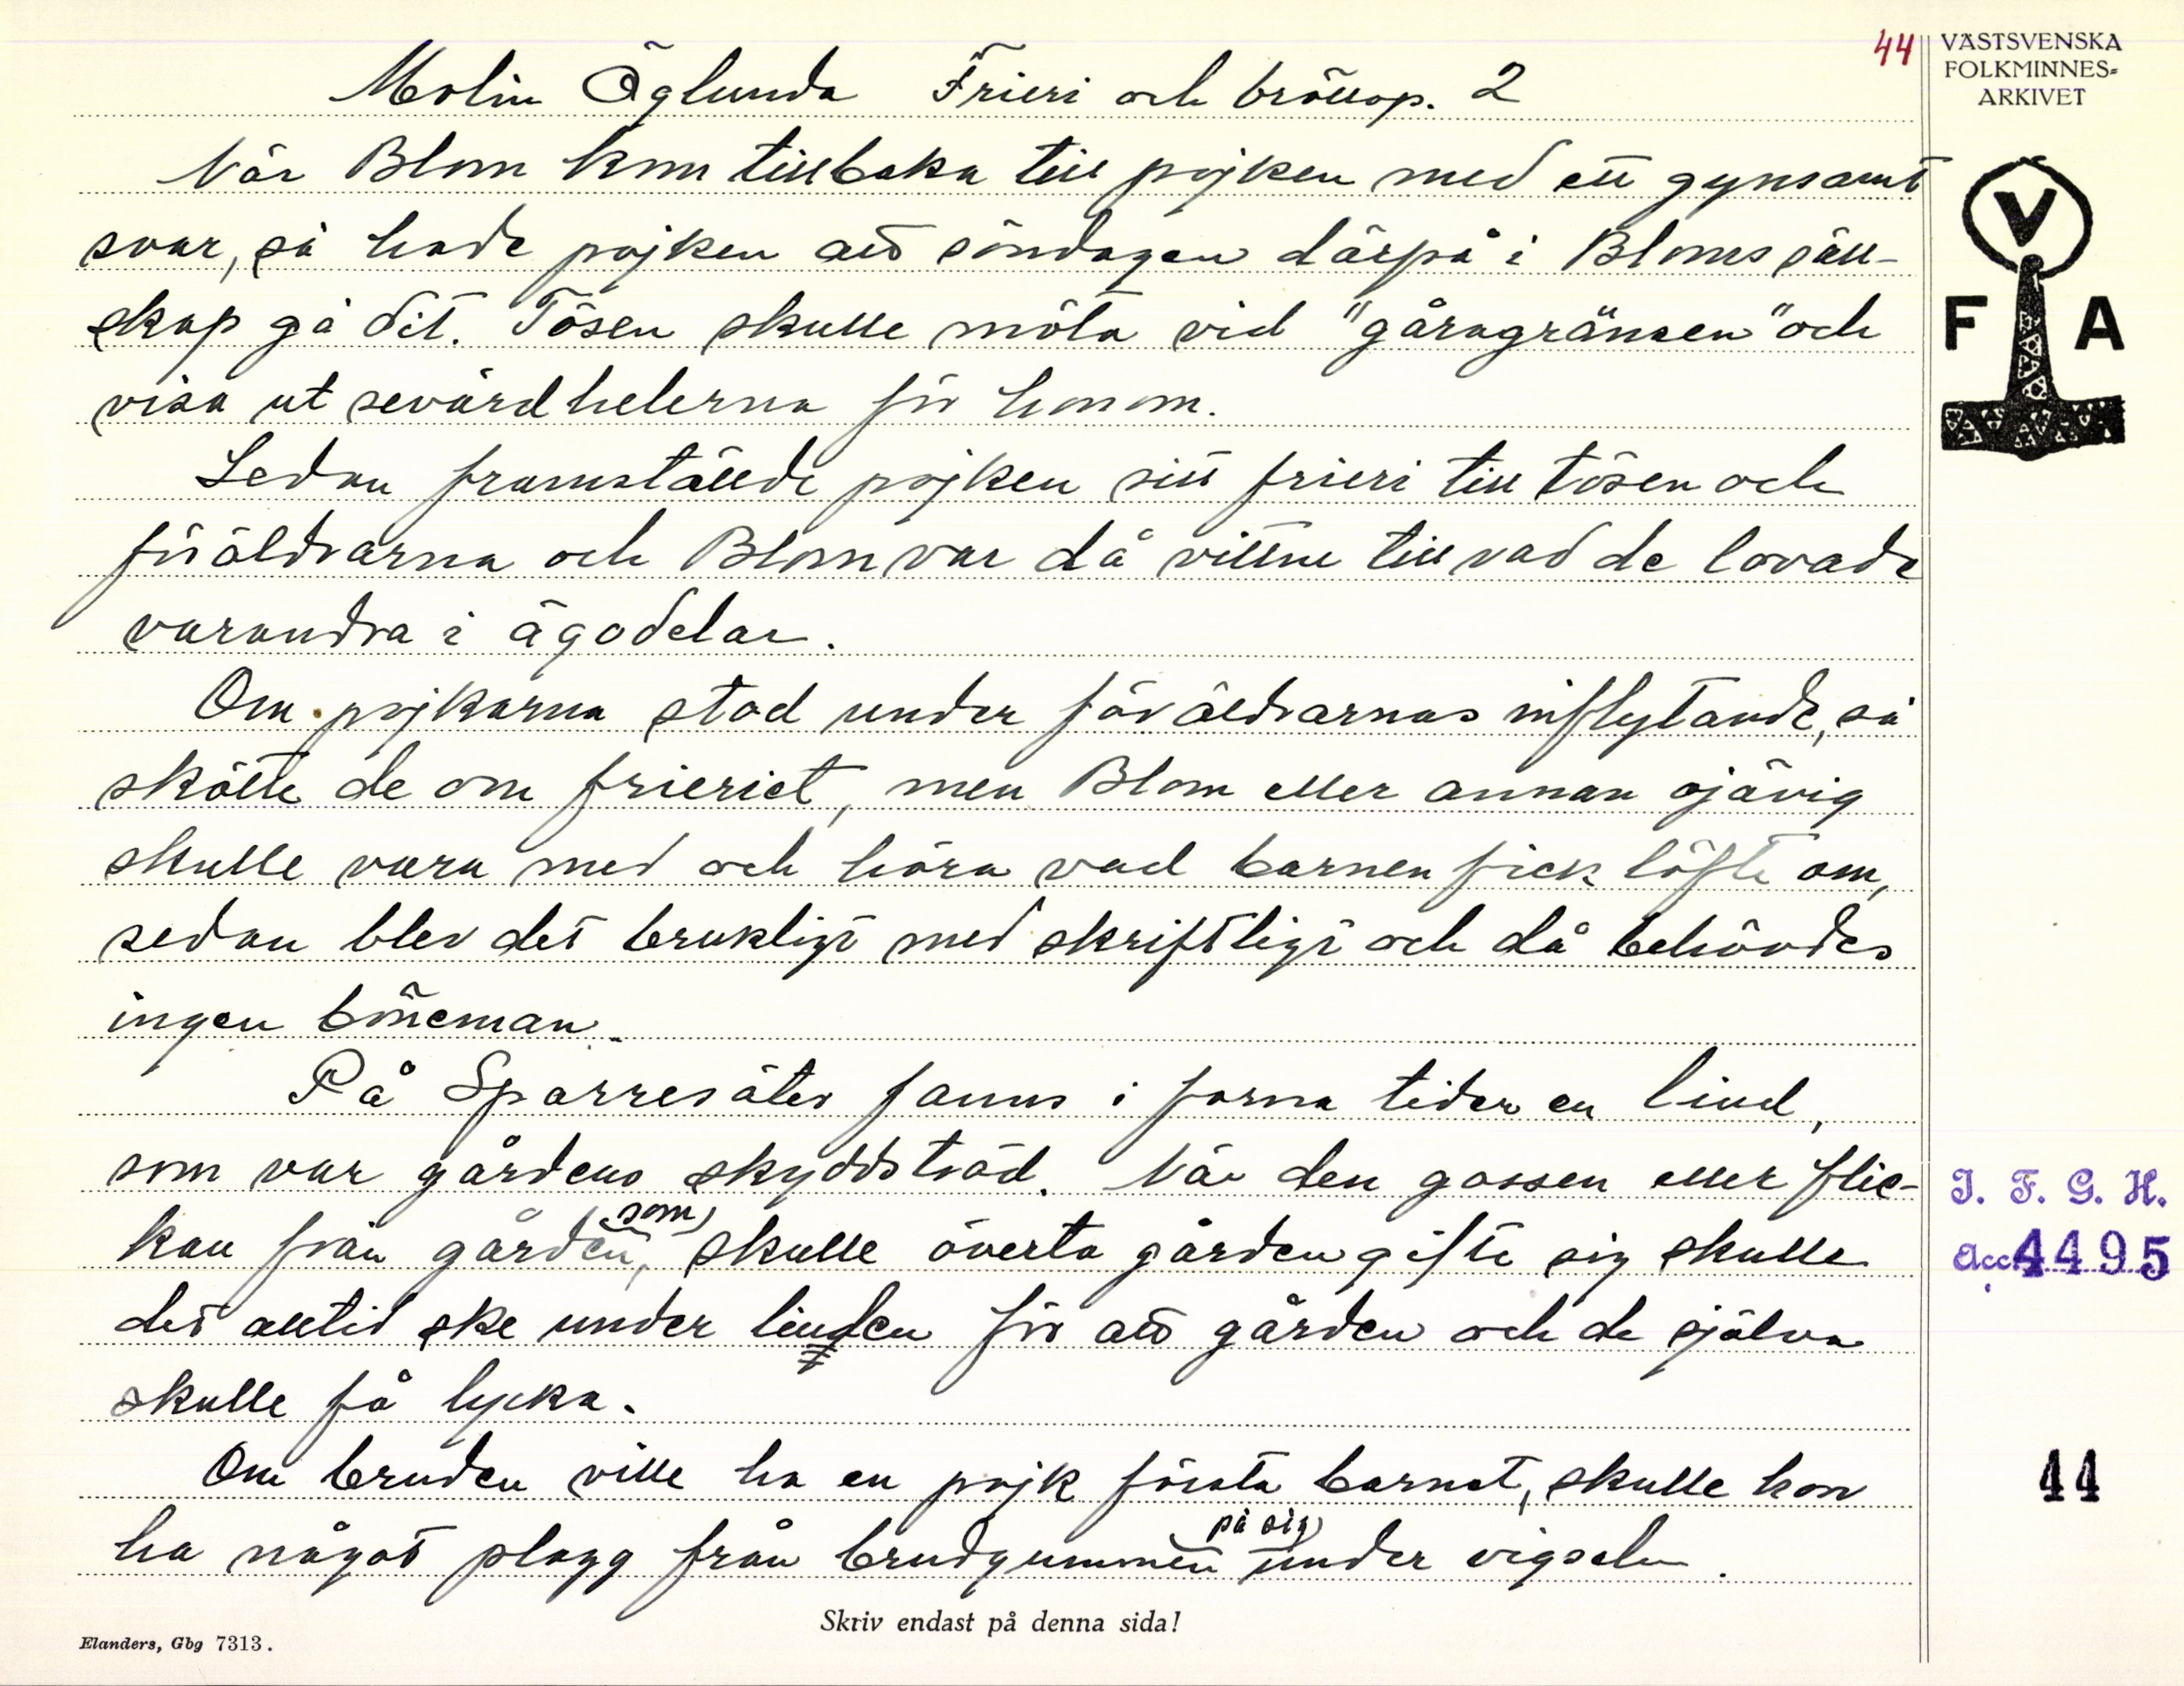 44
VÄSTSVENSKA
FOLKMINNES-
ARKIVET
V
F A
Molin Öglunda Frieri och bröllop. 2
När Blom kom tillbaka till pojken med ett gynsamt
svar, så hade pojken att söndagen därpå i Bloms säll-
skap gå dit. Tösen skulle möta vid "gåragränsen" och
visa ut sevärdheterna för honom.
Sedan framställde pojken sitt frieri till tösen och
föräldrarna och Blom var då vittne till vad de lovade
varandra i ägodelar.
Om pojkarna stod under föräldrarnas inflytande, så
skötte de om frieriet, men Blom eller annan ojävig
skulle vara med och höra vad barnen fick löfte om,
sedan blev det brukligt med skriftligt och då behövdes
ingen böneman.
På Sparresäter fanns i forna tider en lind,
som var gårdens skyddsträd. När den gossen eller flic-
kan från gården, som skulle överta gården gifte sig skulle
det alltid ske under linden för att gården och de själva
skulle få lycka.
Om bruden ville ha en pojk första barnet, skulle hon
ha något plagg från brudgummen på sig under vigseln.
I. F. G. H.
Acc. 4495
44
Skriv endast på denna sida!
Elanders, Gbg 7313.